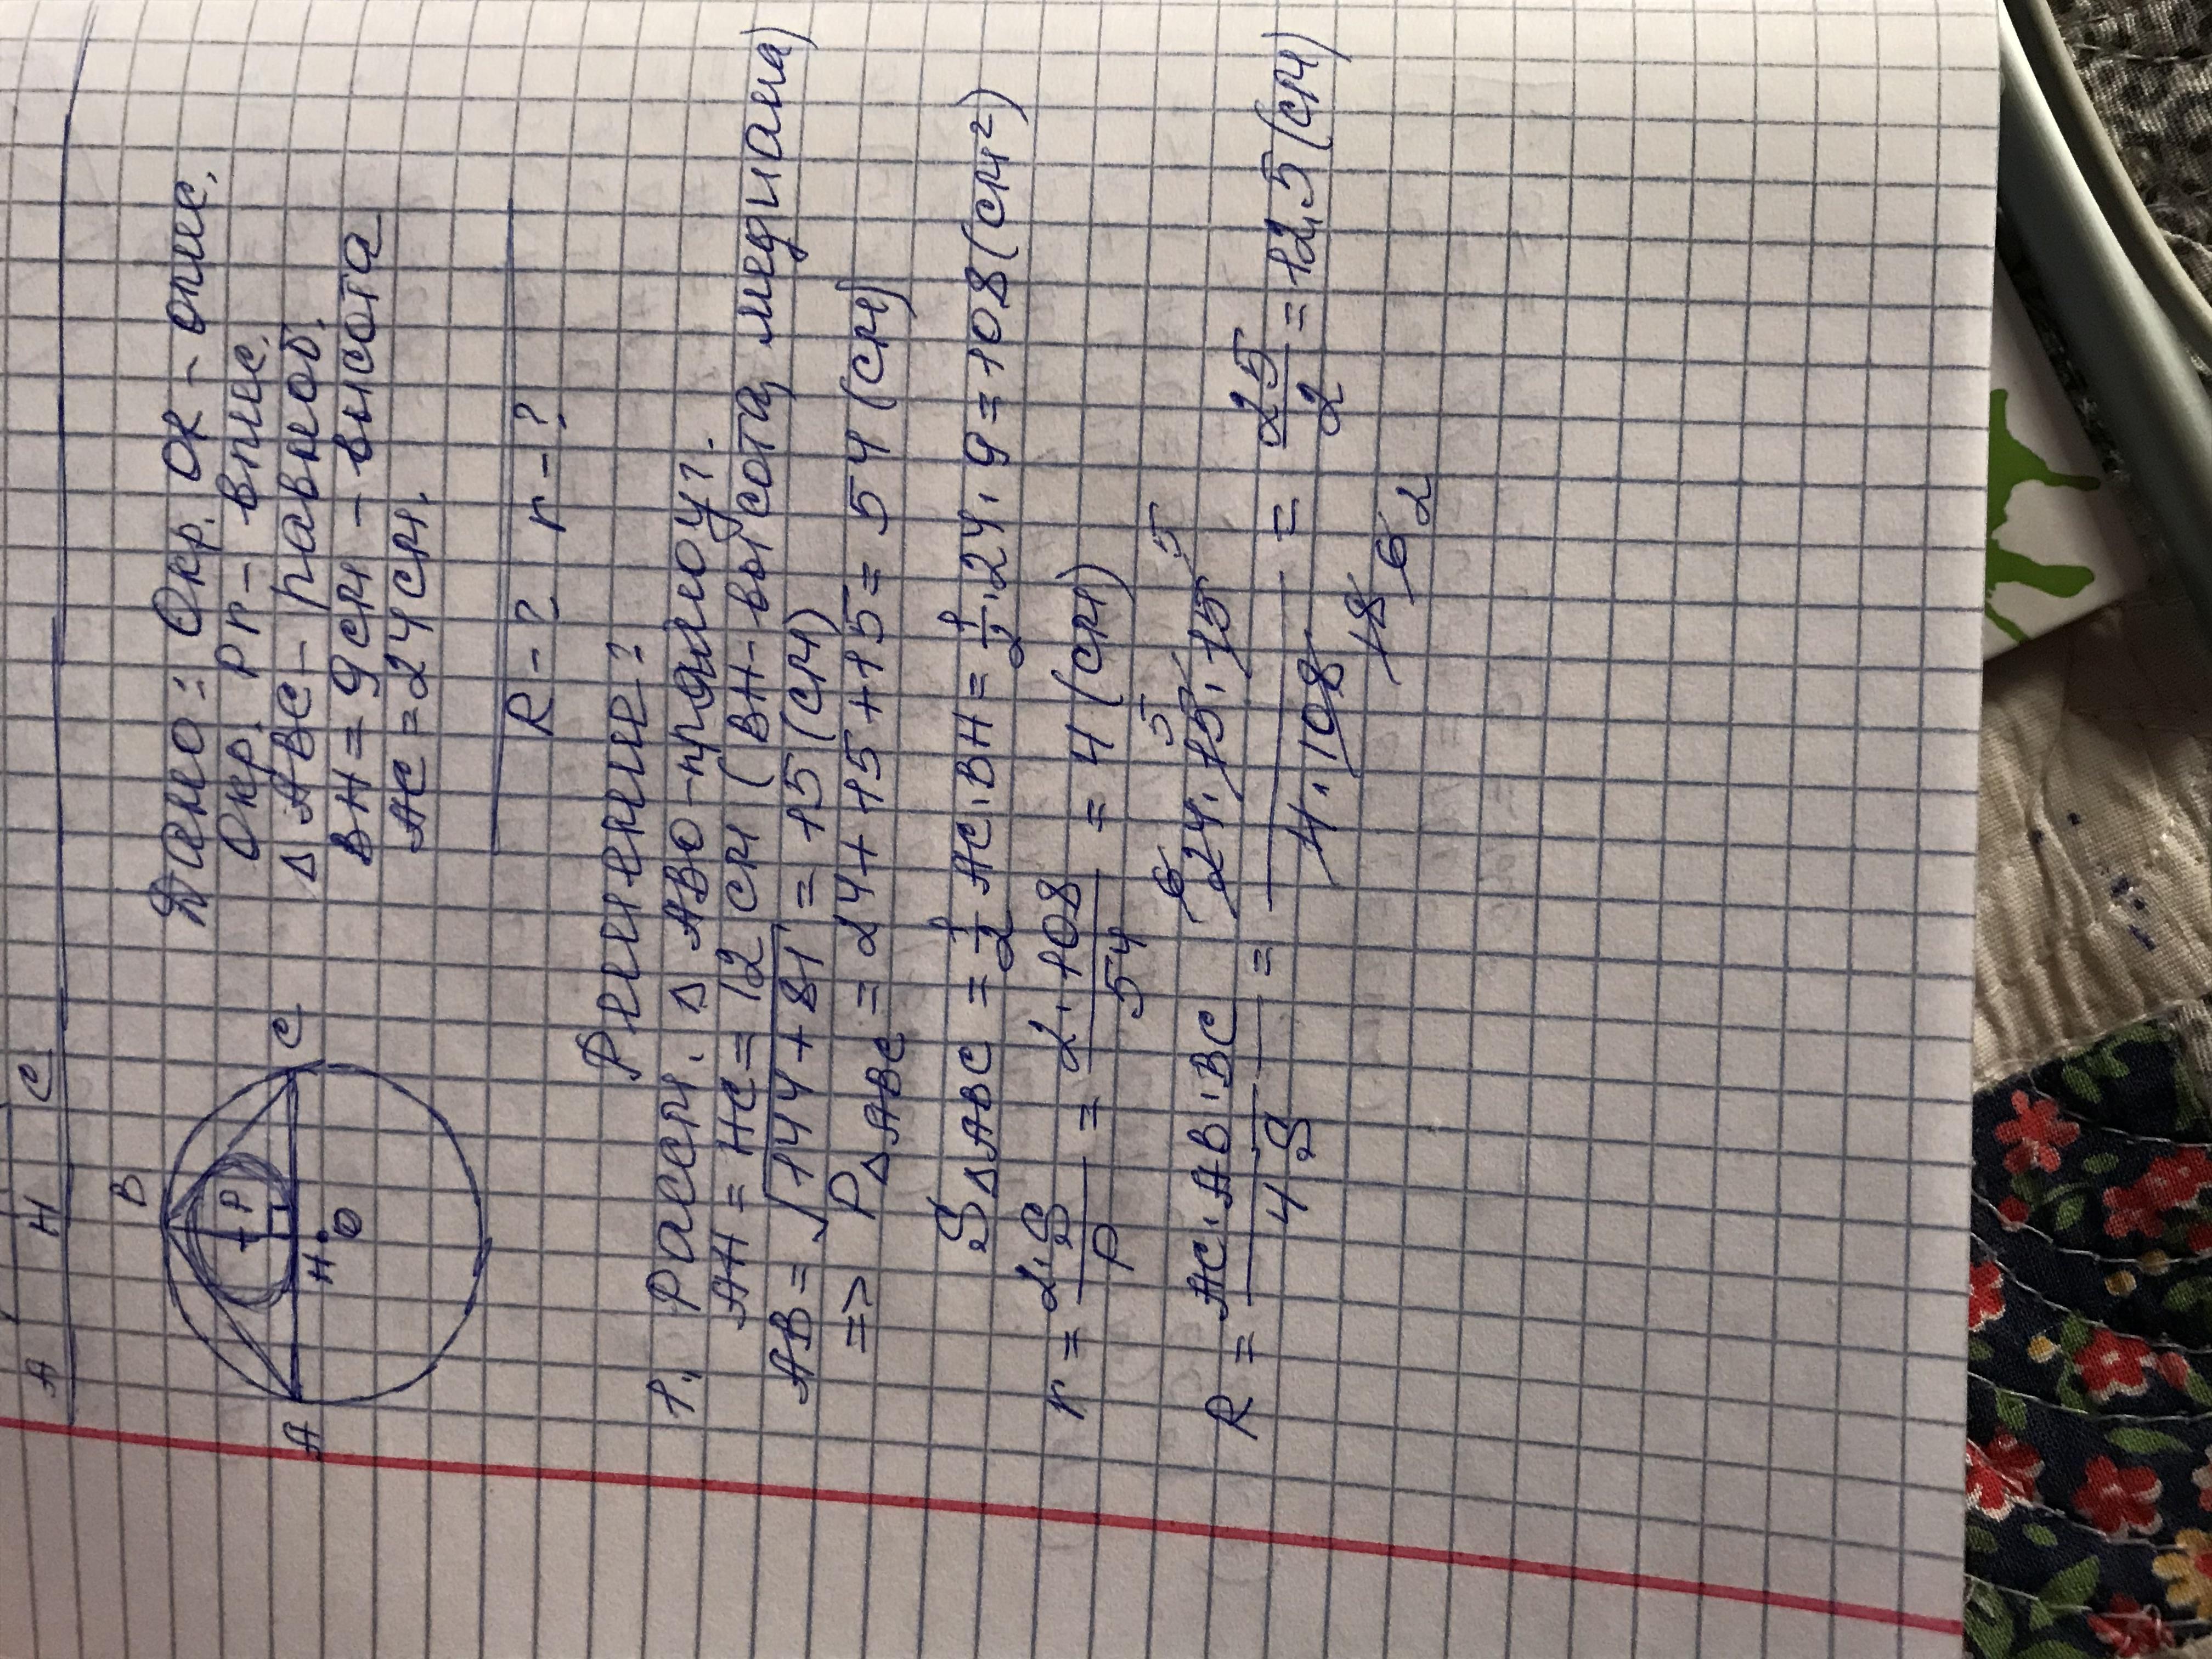 A H C
B
P
A H C
O
Дано: Окр. OR - опис.
Окр. Pr - впис.
Δ ABC - равноб.
BH = 9 см - высота
AC = 24 см.
R - ? r - ?
Решение:
1. Рассм. Δ ABO - прямоуг.
AH = HC = 12 см (BH - высота, медиана)
AB = √144 + 81 = 15 (см)
=> PΔABC = 24 + 15 + 15 = 54 (см)
SΔABC = 1/2 AC · BH = 1/2 · 24 · 9 = 108 (см²)
r = 2·S/P = 2 · 108/54 = 4 (см)
6 5 5
R = AC · AB · BC/4S = 24 · 15 · 15/4 · 108 = 25/2 = 12,5 (см)
18
6
2